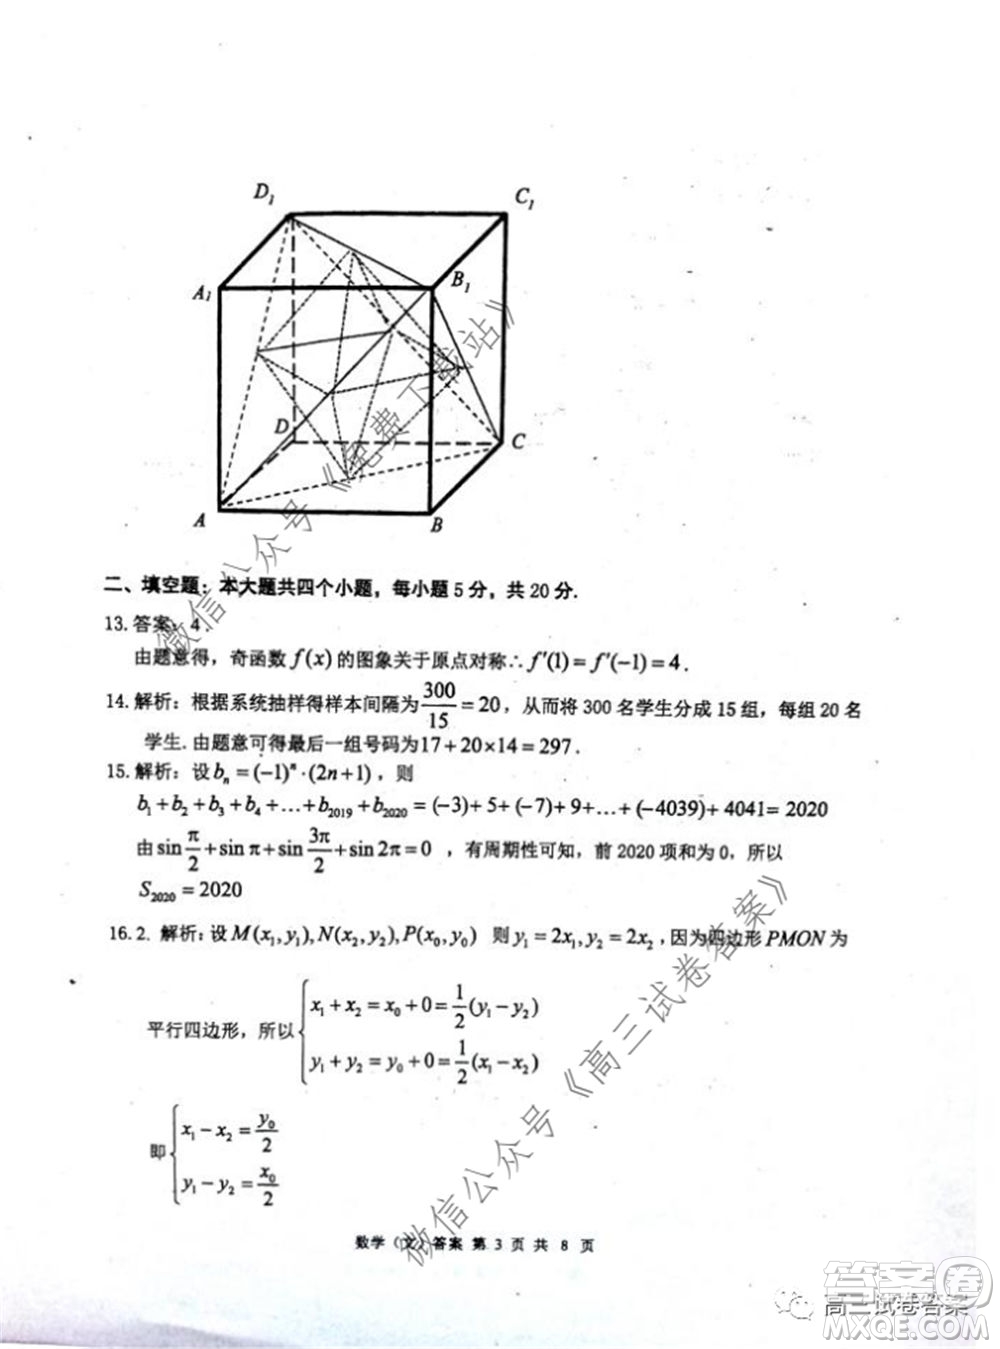 D₁
C₁
A₁
B₁
D
C
A
B
二、填空题：本大题共四个小题，每小题5分，共20分.
13.答案：4.
由题意得，奇函数 f(x) 的图象关于原点对称∴f′(1)=f′(−1)=4.
14.解析：根据系统抽样得样本间隔为 300/15=20，从而将300名学生分成15组，每组20名
学生.由题意可得最后一组号码为17+20×14=297.
15.解析：设 bₙ=(−1)ⁿ·(2n+1)，则
b₁+b₂+b₃+b₄+…+b₂₀₁₉+b₂₀₂₀=(−3)+5+(−7)+9+…+(−4039)+4041=2020
由 sin π/2+sin π+sin 3π/2+sin 2π=0，有周期性可知，前2020项和为0，所以
S₂₀₂₀=2020
16.2. 解析：设 M(x₁,y₁),N(x₂,y₂),P(x₀,y₀) 则 y₁=2x₁,y₂=2x₂,因为四边形PMON为
平行四边形，所以 { x₁+x₂=x₀+0=1/2(y₁−y₂)
y₁+y₂=y₀+0=1/2(x₁−x₂)
即 { x₁−x₂=y₀/2
y₁−y₂=x₀/2
数学（文）答案 第 3 页 共 8 页
微信公众号《免费下载站》
微信公众号《高三试卷答案》
高三试卷答案
答案卷
MXQE.COM